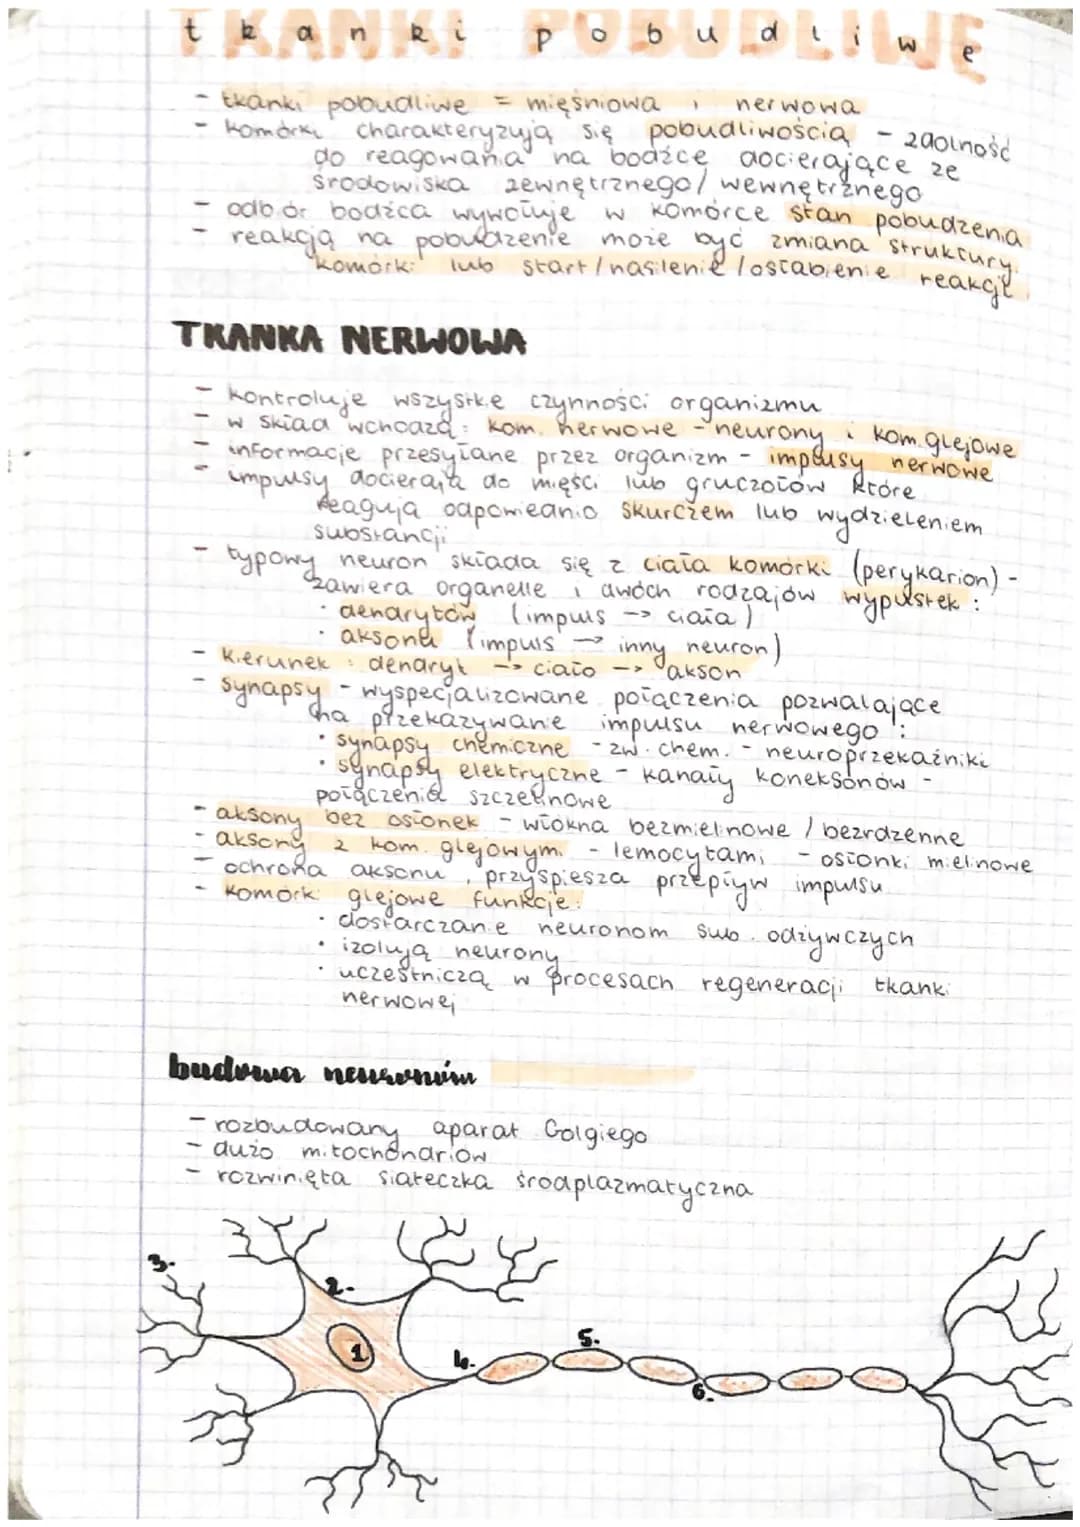 TKANKI POBUDLIWE
tkanki pobudliwe
- tkanki pobudliwe = mięśniowa i nerwowa
- komórki charakteryzują się pobudliwością - zdolność
do reagowania na bodźce docierające ze
środowiska zewnętrznego/wewnętrznego
- odbiór bodźca wywołuje w komórce stan pobudzenia
- reakcją na pobudzenie może być zmiana struktury
komórki lub start/nasilenie/osłabienie reakcji
TKANKA NERWOWA
- kontroluje wszystkie czynności organizmu
- w skład wchodzą: kom. nerwowe - neurony i kom. glejowe
- informacje przesyłane przez organizm - impulsy nerwowe
- impulsy docierają do mięści lub gruczołów które
reagują odpowiednio skurczem lub wydzieleniem
substancji
- typowy neuron składa się z ciała komórki (perykarion) -
zawiera organelle i dwóch rodzajów wypustek:
· dendrytów (impuls → ciała)
· aksonu (impuls → inny neuron)
- kierunek: dendryt → ciało → akson
- synapsy - wyspecjalizowane połączenia pozwalające
na przekazywanie impulsu nerwowego:
· synapsy chemiczne - zw. chem. - neuroprzekaźniki
· synapsy elektryczne - kanały koneksonów -
połączenia szczelinowe
- aksony bez osłonek - włókna bezmielinowe / bezrdzenne
- aksony z kom. glejowymi - lemocytami - osłonki mielinowe
- ochrona aksonu, przyspiesza przepływ impulsu
- komórki glejowe funkcje:
· dostarczanie neuronom sub. odżywczych
· izolują neurony
· uczestniczą w procesach regeneracji tkanki
nerwowej
budowa neuronów
- rozbudowany aparat Golgiego
- dużo mitochondriów
- rozwinięta siateczka śródplazmatyczna
3.
2.
1
4.
5.
6.